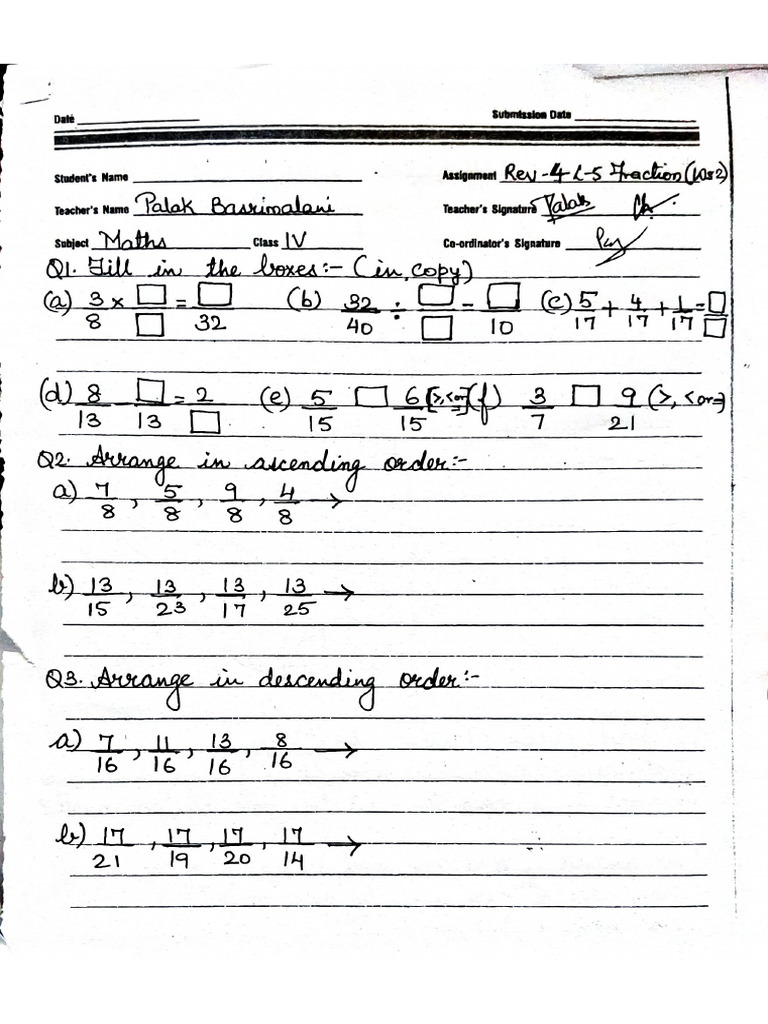 Date Submission Date
Student's Name Assignment Rev-4 L-5 Fraction (Ws2)
Teacher's Name Palak Basrimalani Teacher's Signature Palak
Subject Maths Class IV Co-ordinator's Signature
Q1. Fill in the boxes:- (in copy)
(a) 3/8 × □/□ = □/32 (b) 32/40 ÷ □/□ = □/10 (c) 5/17 + 4/17 + 1/17 = □/□
(d) 8/13 - □/13 = 2/□ (e) 5/15 □ 6/15 [>, < or =] (f) 3/7 □ 9/21 (>, < or =)
Q2. Arrange in ascending order:-
a) 7/8, 5/8, 9/8, 4/8 →
b) 13/15, 13/23, 13/17, 13/25 →
Q3. Arrange in descending order:-
a) 7/16, 11/16, 13/16, 8/16 →
b) 17/21, 17/19, 17/20, 17/14 →